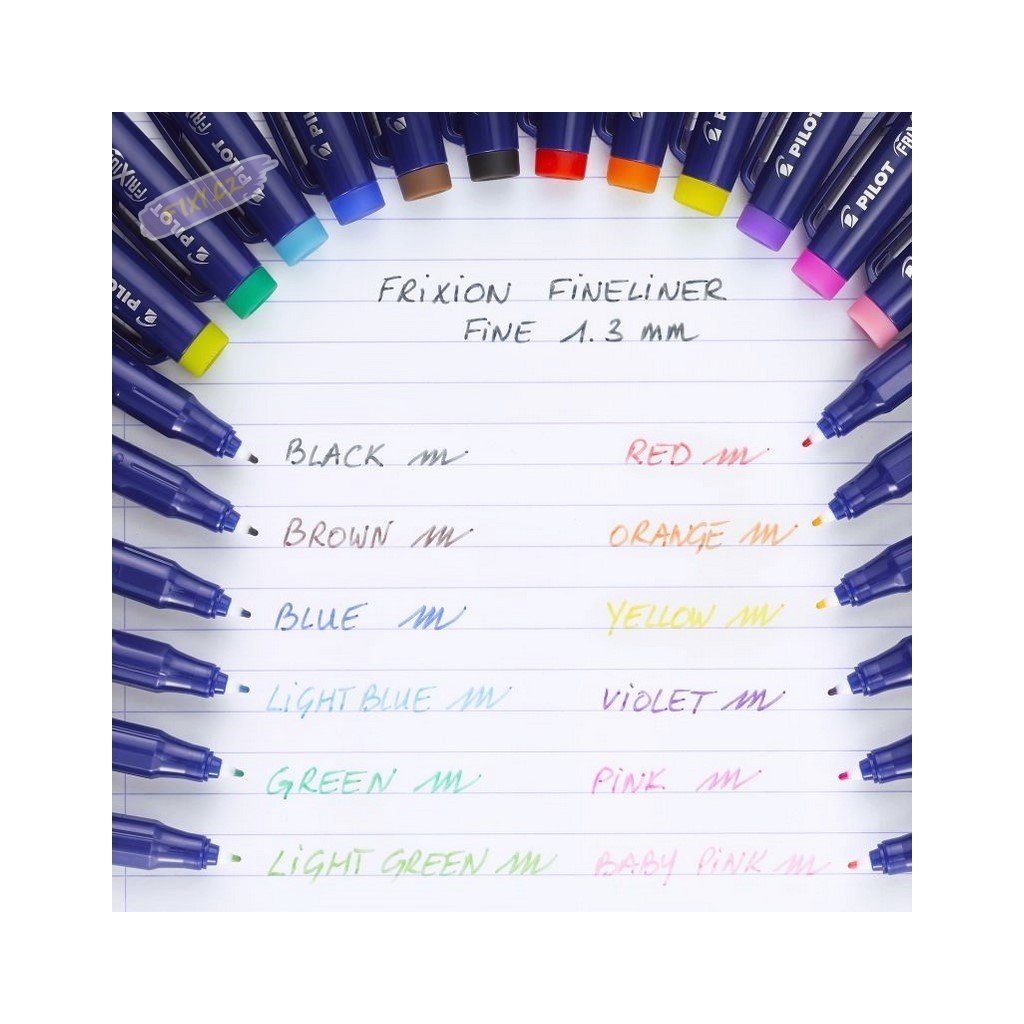 FRIXION
PILOT
FRIXION
PILOT
PILOT
PILOT
PILOT
PILOT
PILOT
FRIX
FIXY.CZ
FRIXION FINELINER
FINE 1.3 mm
BLACK
RED
BROWN
ORANGE
BLUE
YELLOW
LIGHT BLUE
VIOLET
GREEN
PINK
LIGHT GREEN
BABY PINK